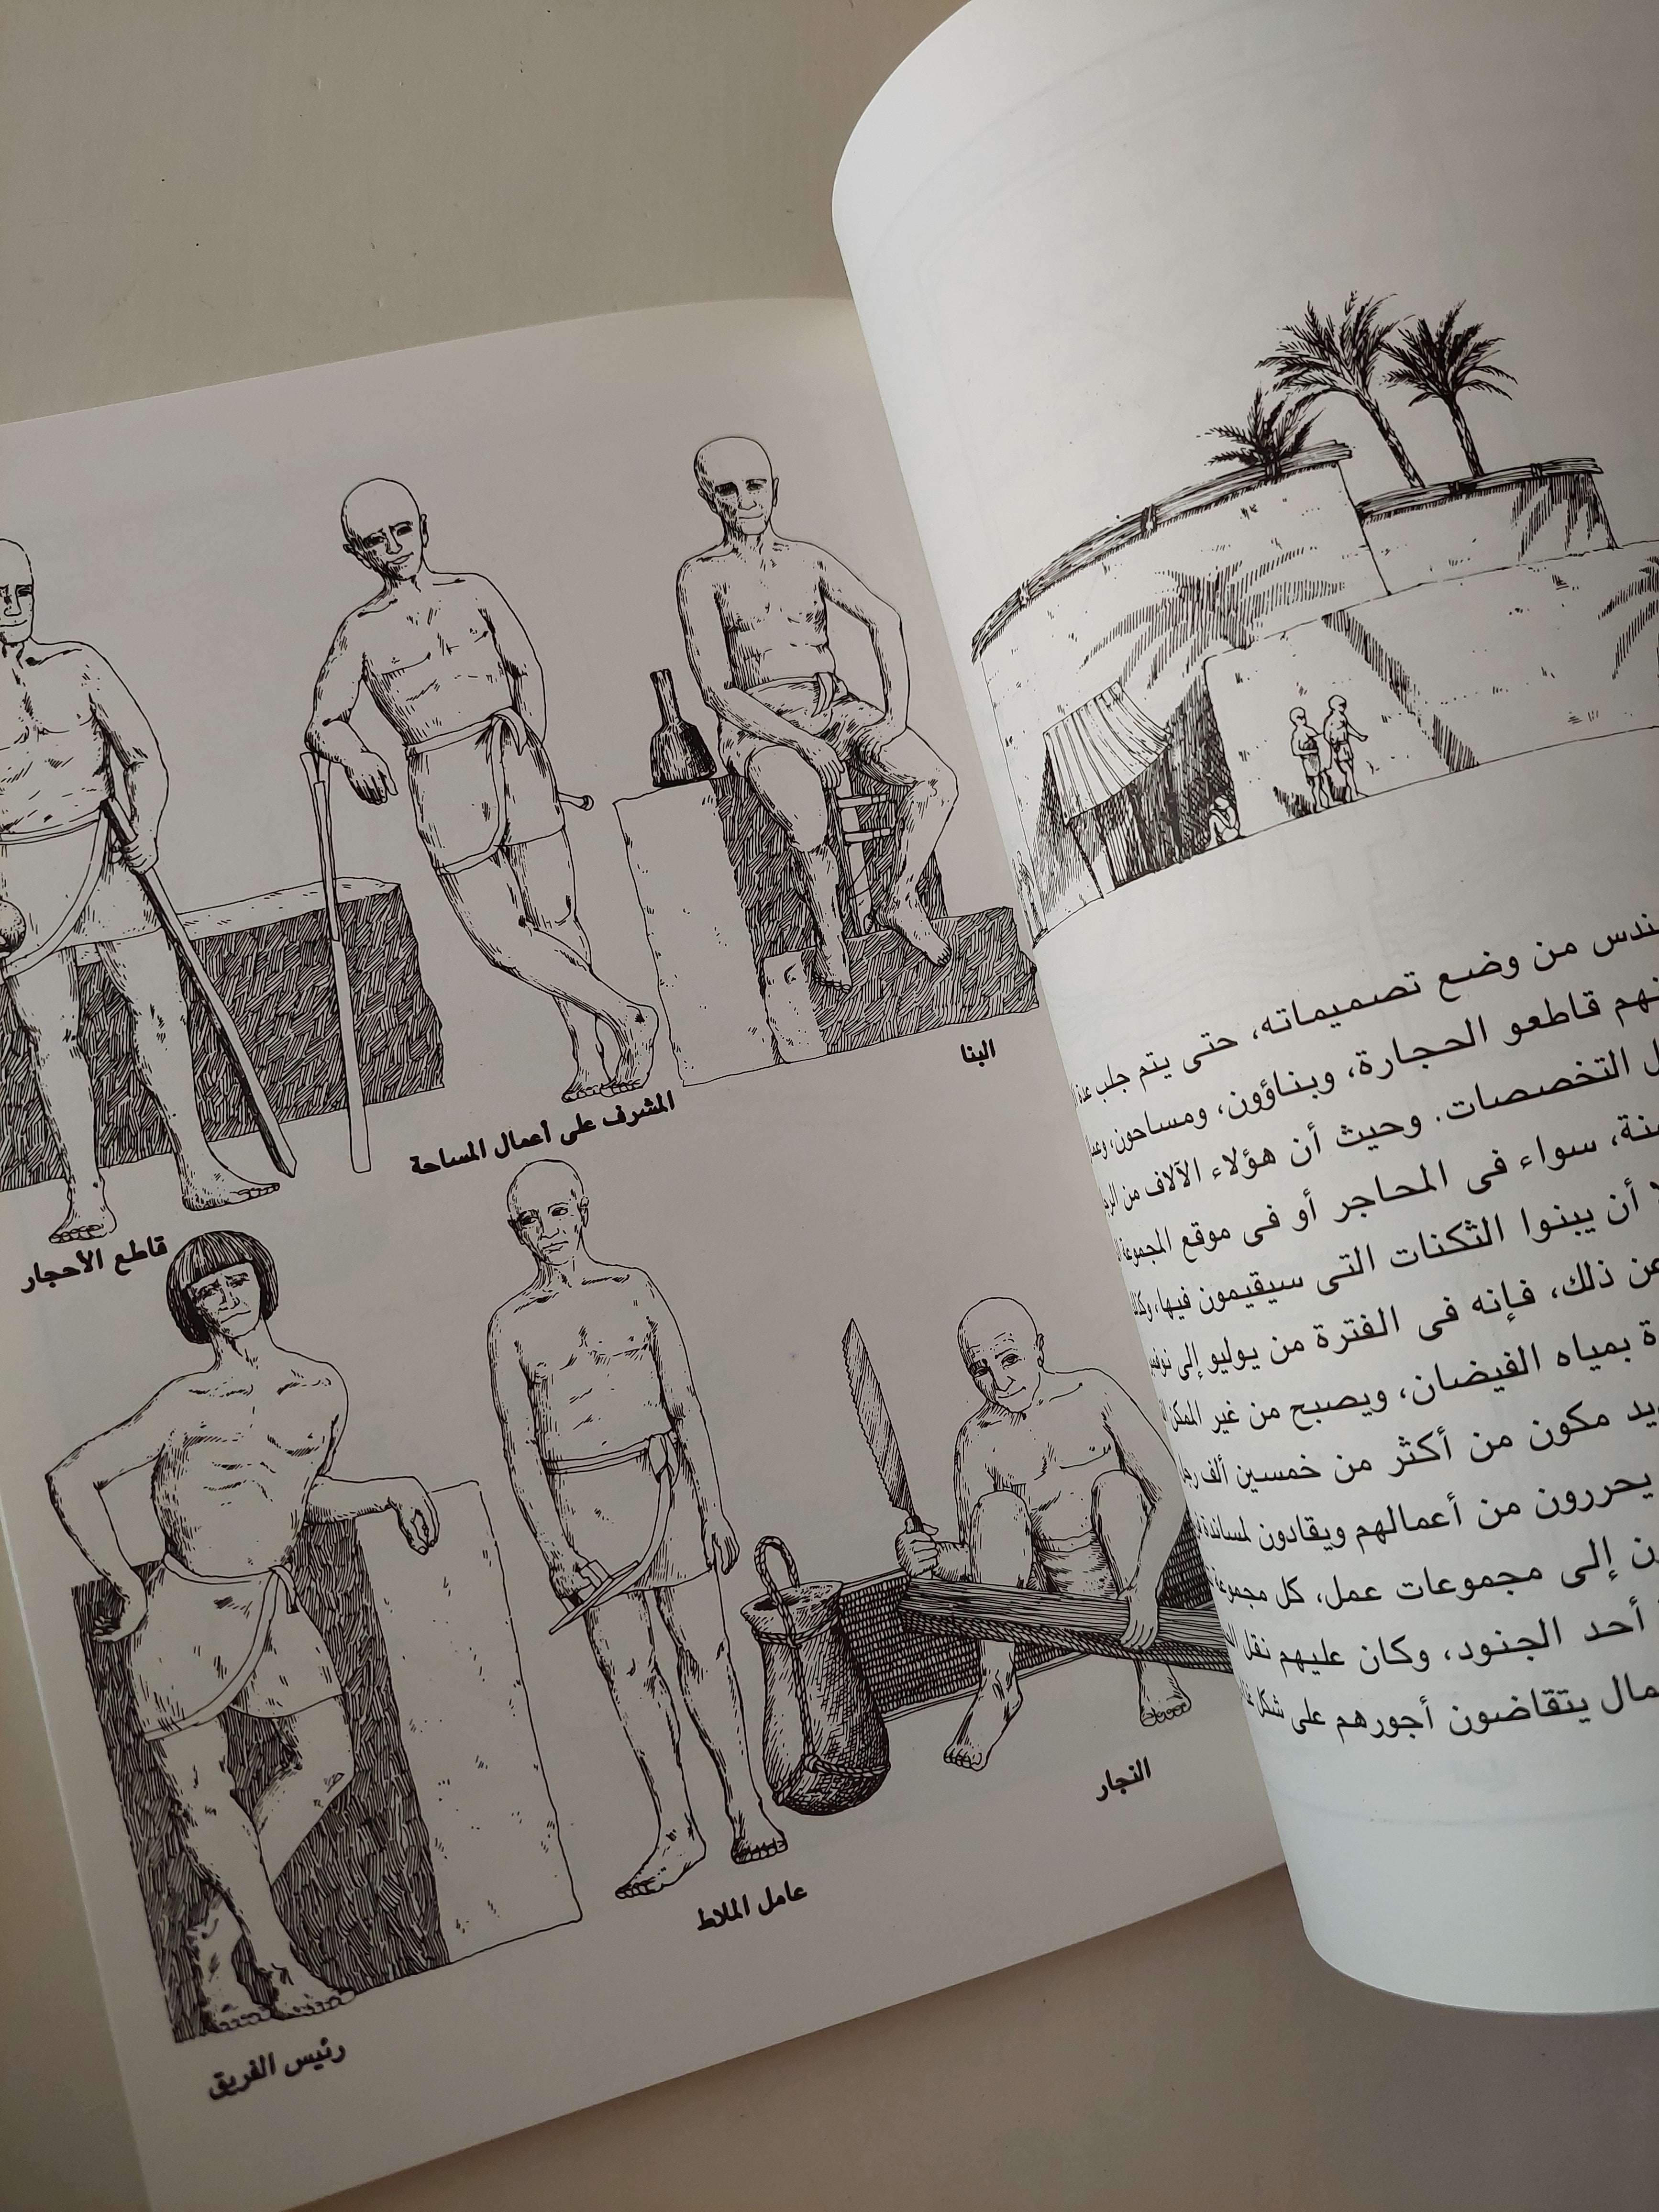 البنا
المشرف على أعمال المساحة
قاطع الأحجار
النجار
عامل الملاط
رئيس الفريق
من وضع تصميماته، حتى يتم جلب
قاطعو الحجارة، وبناؤون، ومساحون،
التخصصات. وحيث أن هؤلاء الآلاف من
سواء فى المحاجر أو فى موقع المجموعة
أن يبنوا الثكنات التى سيقيمون فيها،
ذلك، فإنه فى الفترة من يوليو إلى
بمياه الفيضان، ويصبح من غير الممكن
مكون من أكثر من خمسين ألف
يحررون من أعمالهم ويقادون لمساندة
إلى مجموعات عمل، كل مجموعة
أحد الجنود، وكان عليهم نقل
يتقاضون أجورهم على شكل